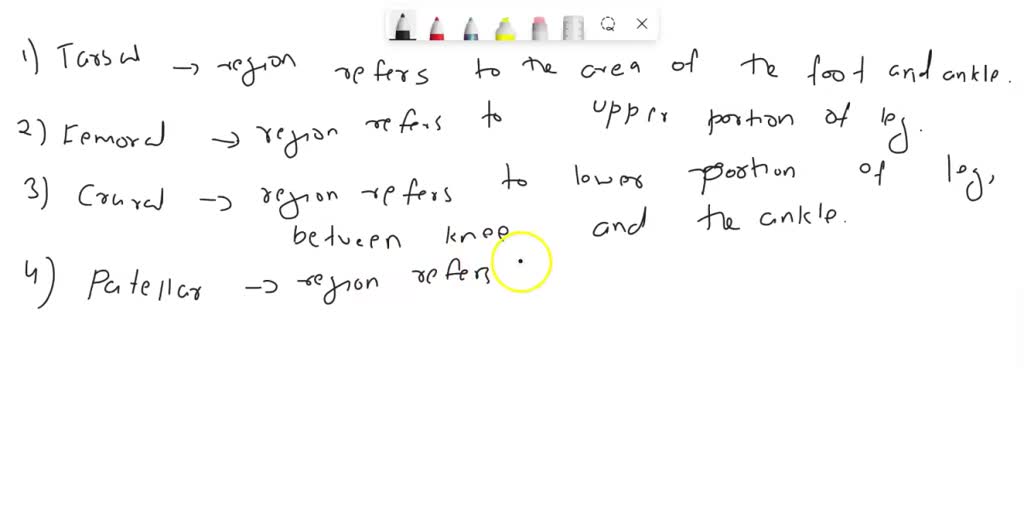 1) Tarsal → region refers to the area of the foot and ankle.
2) Femoral → region refers to upper portion of leg.
3) Crural → region refers to lower portion of leg,
between knee and the ankle.
4) Patellar → region refers